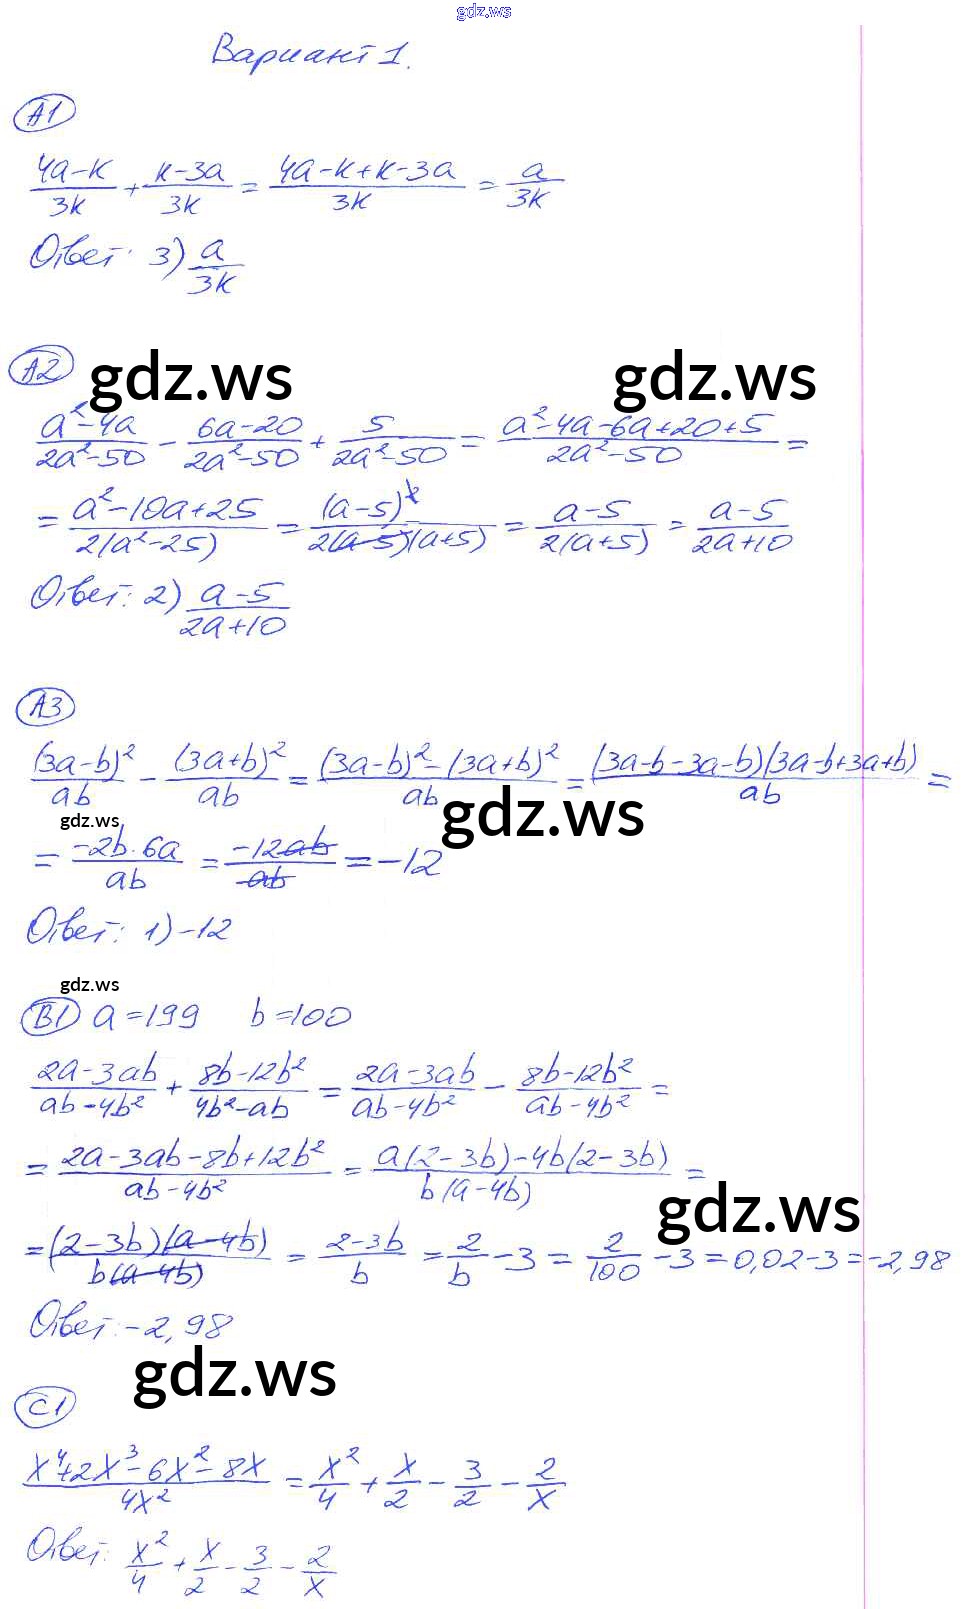 gdz.ws
Вариант 1.
А1
(4a-k)/3k + (k-3a)/3k = (4a-k+k-3a)/3k = a/3k
Ответ: 3) a/3k
А2 gdz.ws gdz.ws
(a²-4a)/(2a²-50) - (6a-20)/(2a²-50) + 5/(2a²-50) = (a²-4a-6a+20+5)/(2a²-50) =
= (a²-10a+25)/(2(a²-25)) = (a-5)²/(2(a-5)(a+5)) = (a-5)/(2(a+5)) = (a-5)/(2a+10)
Ответ: 2) (a-5)/(2a+10)
А3
(3a-b)²/ab - (3a+b)²/ab = ((3a-b)²-(3a+b)²)/ab = ((3a-b-3a-b)(3a-b+3a+b))/ab =
gdz.ws gdz.ws
= (-2b·6a)/ab = -12ab/ab = -12
Ответ: 1) -12
gdz.ws
В1 a=199 b=100
(2a-3ab)/(ab-4b²) + (8b-12b²)/(4b²-ab) = (2a-3ab)/(ab-4b²) - (8b-12b²)/(ab-4b²) =
= (2a-3ab-8b+12b²)/(ab-4b²) = (a(2-3b)-4b(2-3b))/(b(a-4b)) =
gdz.ws
= ((2-3b)(a-4b))/(b(a-4b)) = (2-3b)/b = 2/b - 3 = 2/100 - 3 = 0,02-3 = -2,98
Ответ: -2,98
gdz.ws
С1
(x⁴+2x³-6x²-8x)/4x² = x²/4 + x/2 - 3/2 - 2/x
Ответ: x²/4 + x/2 - 3/2 - 2/x